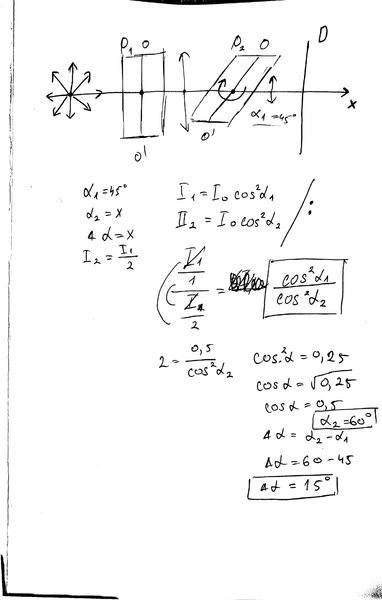 P₁ O P₂ O D
α₁=45° x
O' O'
α₁=45°
α₂=x
Δα=x
I₂=I₁/2
I₁=I₀cos²α₁
II₂=I₀cos²α₂ /:
(I₁/1)/(I₁/2) = cos²α₁/cos²α₂
2=0,5/cos²α₂
cos²α=0,25
cosα=√0,25
cosα=0,5
α₂=60°
Δα=α₂-α₁
Δα=60-45
Δα=15°